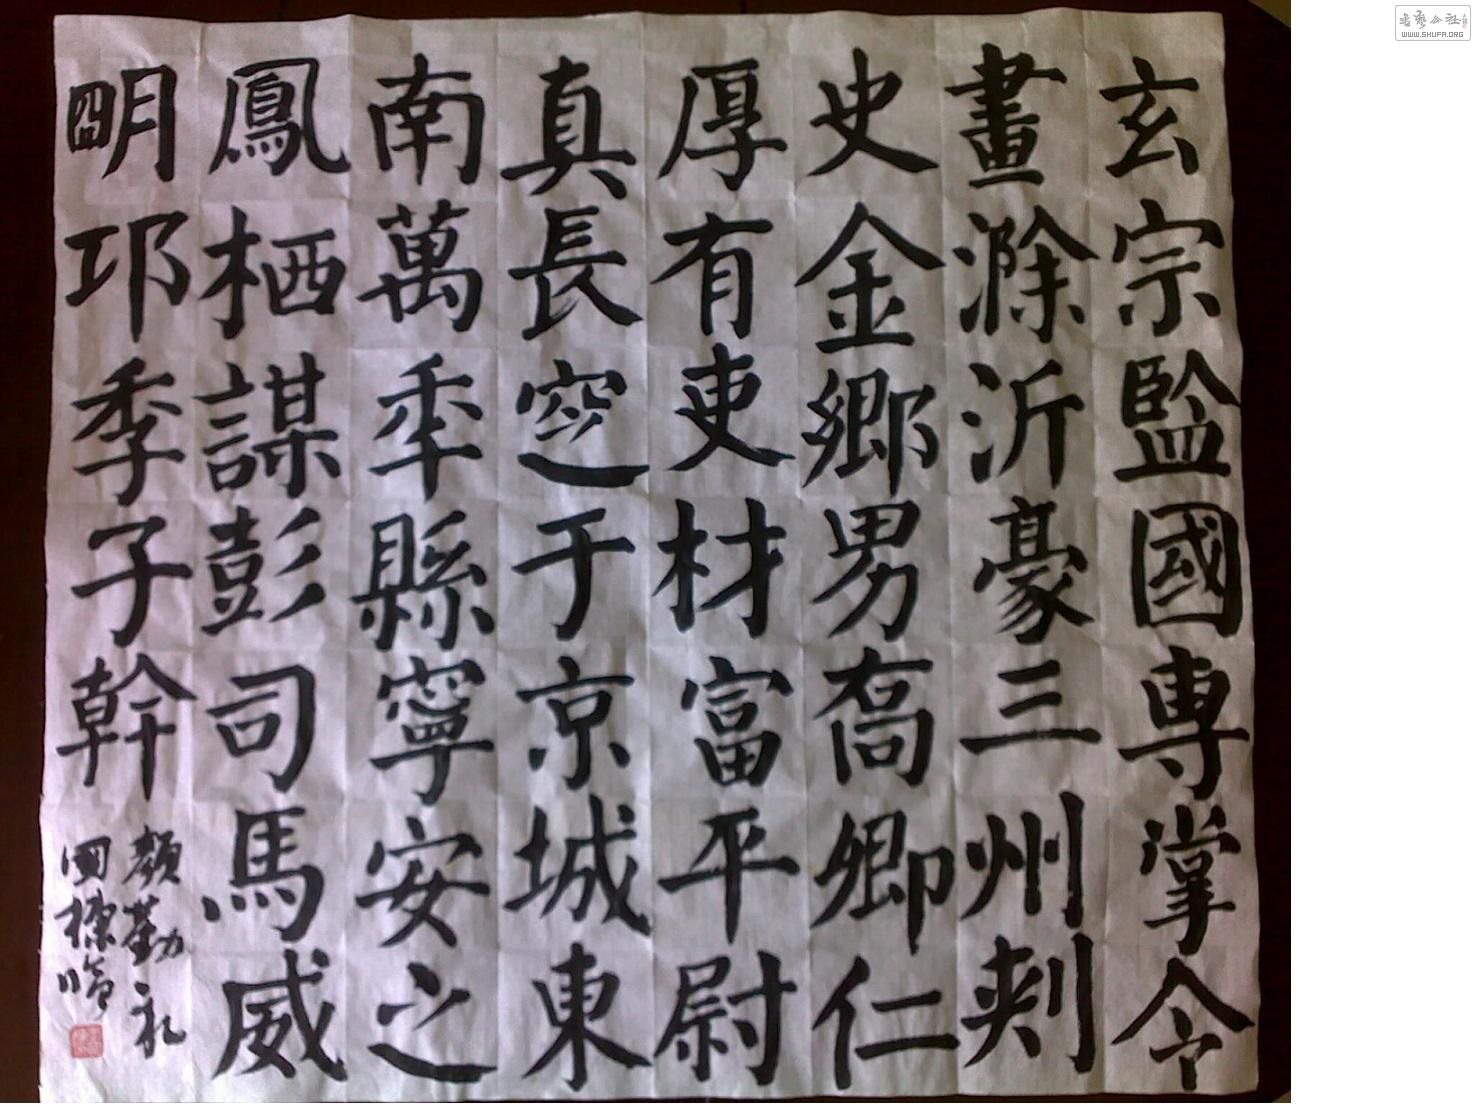 玄宗監國專掌令
畫滁沂豪三州刾
史金鄉男喬卿仁
厚有吏材富平尉
真長空于京城東
南萬秊縣寧安之
鳳栖謀彭司馬威
明邛季子幹
顏勤礼
臨
WWW.SHUFA.ORG